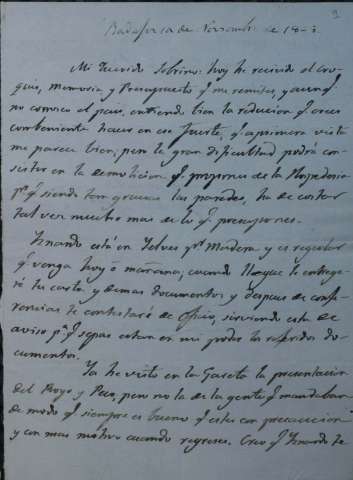 de Noviembre de 18
Mi Querido Sobrino: hoy he recivido el cro-
quis, Memoria y Presupuesto q.e me remites, y aunq.e
no conozco el pais, entiendo bien la reducion q.e crees
combeniente hacer en ese fuerte, q.e a primera vista
me parece bien, pero la gran dificultad podrá con-
sistir en la demolicion q.e propones de la Hospederia
p.r q.e siendo tan gruesas las paredes, ha de costar
tal vez mucho mas de lo q.e presupones.
está en Yelves p.r Madera y es regular
q.e venga hoy ó mañana, cuando llegue le entrega-
ré tu carta y demas documentos y despues de confe-
renciar te contestaré de Oficio, sirviendo este de
aviso p.a q.e sepas estan en mi poder los referidos do-
cumentos.
Ya he visto en la Gaceta la presentacion
del Royo y Peco, pero no la de la gente q.e mandaban
de modo q.e siempre es bueno q.e estes con precaucion
y con mas motivo cuando regreses. Creo q.e te